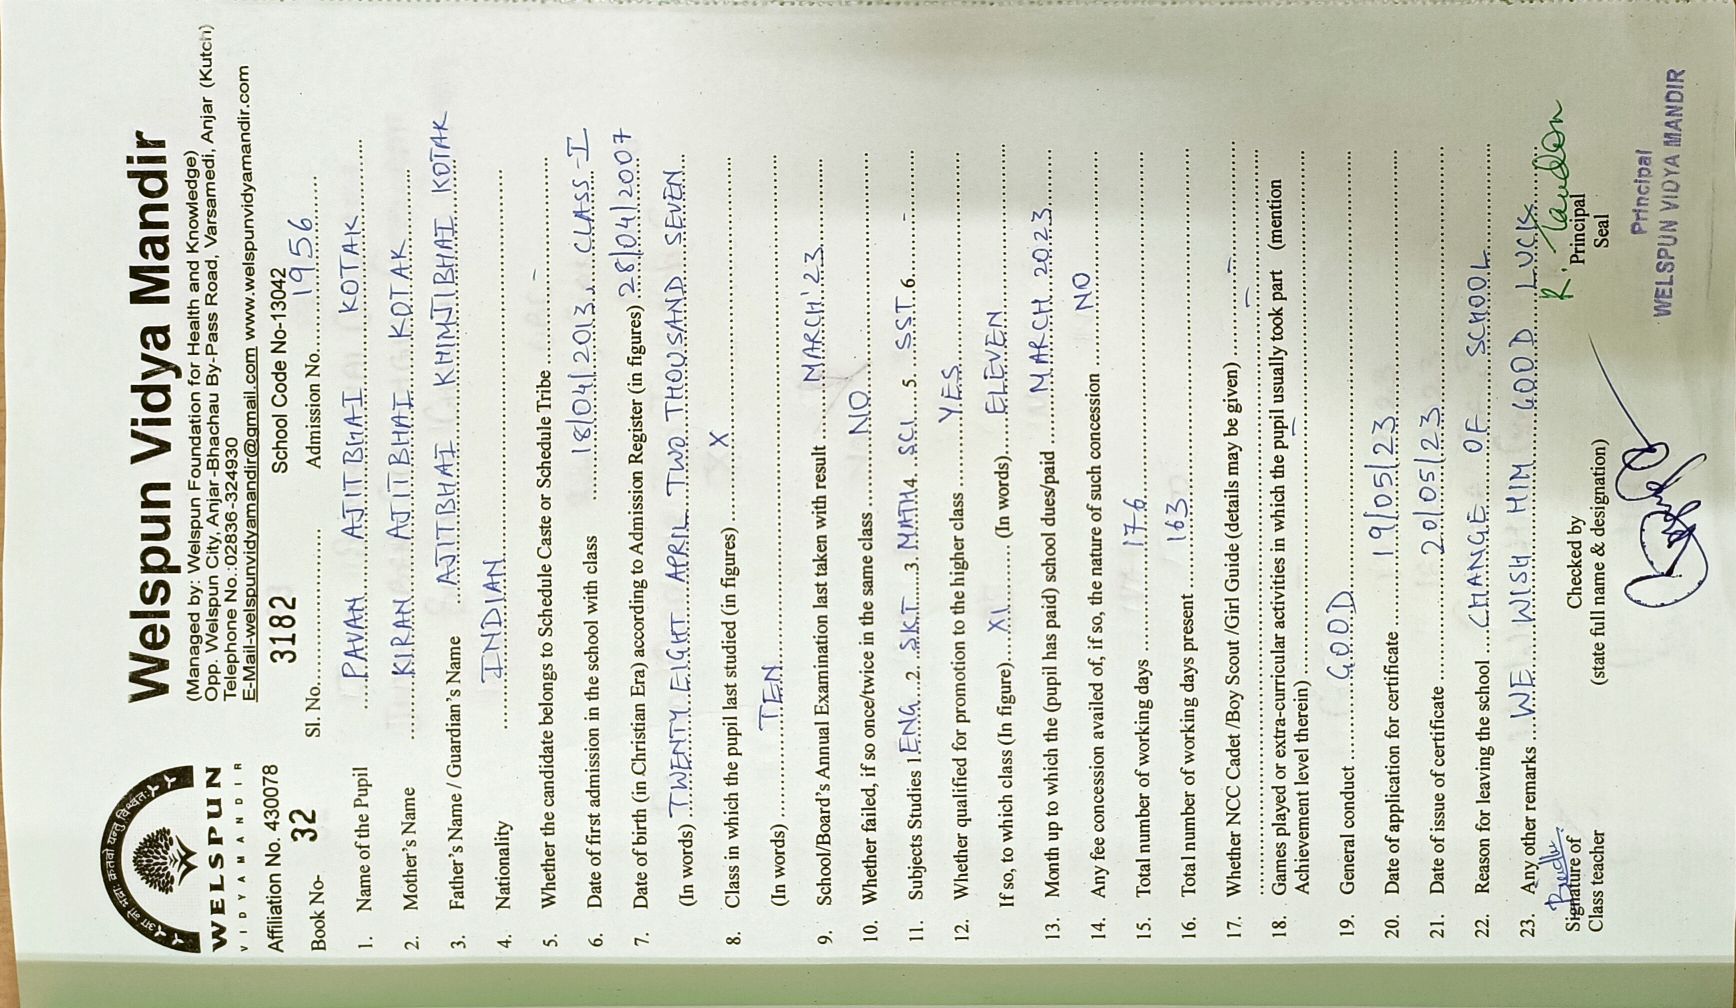 Welspun Vidya Mandir
(Managed by: Welspun Foundation for Health and Knowledge)
Opp. Welspun City, Anjar -Bhachau By-Pass Road, Varsamedi, Anjar (Kutch)
Telephone No. :02836-324930
E-Mail-welspunvidyamandir@gmail.com www.welspunvidyamandir.com
WELSPUN
VIDYAMANDIR
Affiliation No. 430078 3182 School Code No-13042
Book No- 32 Sl. No. Admission No. 1956
1. Name of the Pupil PAVAN AJITBHAI KOTAK
2. Mother's Name KIRAN AJITBHAI KOTAK
3. Father's Name / Guardian's Name AJITBHAI KHIMJIBHAI KOTAK
4. Nationality INDIAN
5. Whether the candidate belongs to Schedule Caste or Schedule Tribe -
6. Date of first admission in the school with class 18/04/2013 CLASS-I
7. Date of birth (in Christian Era) according to Admission Register (in figures) 28/04/2007
(In words) TWENTY EIGHT APRIL TWO THOUSAND SEVEN
8. Class in which the pupil last studied (in figures) X
(In words) TEN
9. School/Board's Annual Examination last taken with result MARCH'23
10. Whether failed, if so once/twice in the same class NO
11. Subjects Studies 1. ENG 2. SKT 3. MATH 4. SCI 5. SST 6. -
12. Whether qualified for promotion to the higher class YES
If so, to which class (In figure) XI (In words) ELEVEN
13. Month up to which the (pupil has paid) school dues/paid MARCH 2023
14. Any fee concession availed of, if so, the nature of such concession NO
15. Total number of working days 176
16. Total number of working days present 163
17. Whether NCC Cadet /Boy Scout /Girl Guide (details may be given) -
-
18. Games played or extra-curricular activities in which the pupil usually took part (mention
Achievement level therein) -
19. General conduct GOOD
20. Date of application for certificate 19/05/23
21. Date of issue of certificate 20/05/23
22. Reason for leaving the school CHANGE OF SCHOOL
23. Any other remarks WE WISH HIM GOOD LUCK
Signature of
Class teacher
Checked by
(state full name & designation)
R. Tandon
Principal
Seal
Principal
WELSPUN VIDYA MANDIR